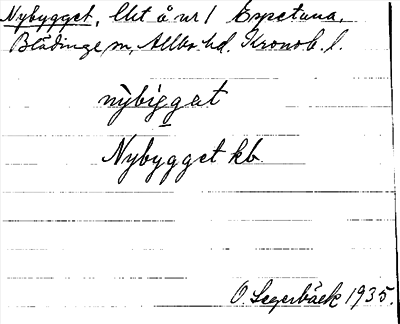 Nybygget, lht å nr 1 Espetuna,
Blädinge sn, Allbo hd. Kronob. l.
nỳbiggat
Nybygget kb
O. Segerbäck 1935.